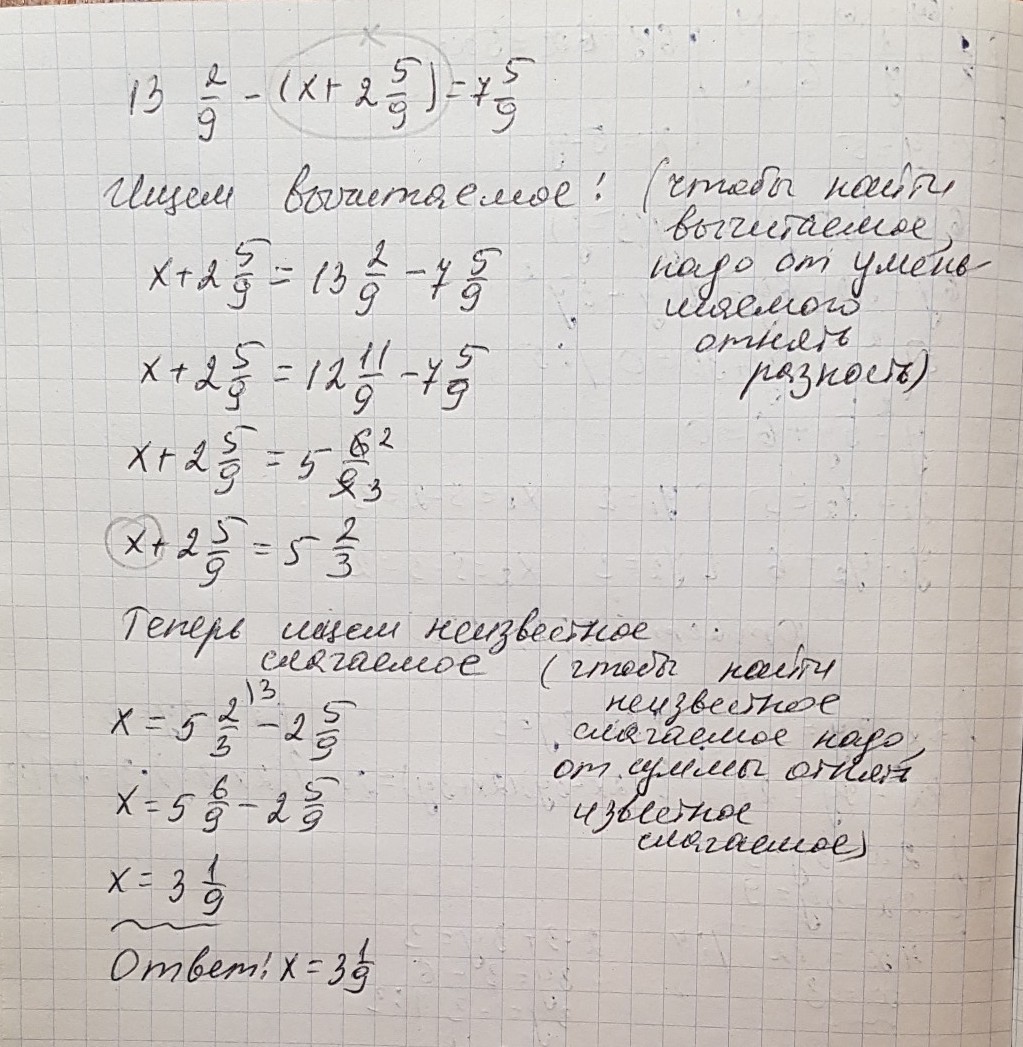 x
13 2/9 - (x + 2 5/9) = 7 5/9
Ищем вычитаемое: (чтобы найти
вычитаемое,
надо от умень-
шаемого
отнять
разность)
x + 2 5/9 = 13 2/9 - 7 5/9
x + 2 5/9 = 12 11/9 - 7 5/9
x + 2 5/9 = 5 6 2/9 3
x + 2 5/9 = 5 2/3
Теперь ищем неизвестное
слагаемое (чтобы найти
неизвестное
слагаемое надо,
от суммы отнять
известное
слагаемое)
x = 5 2/3 |3 - 2 5/9
x = 5 6/9 - 2 5/9
x = 3 1/9
Ответ: x = 3 1/9